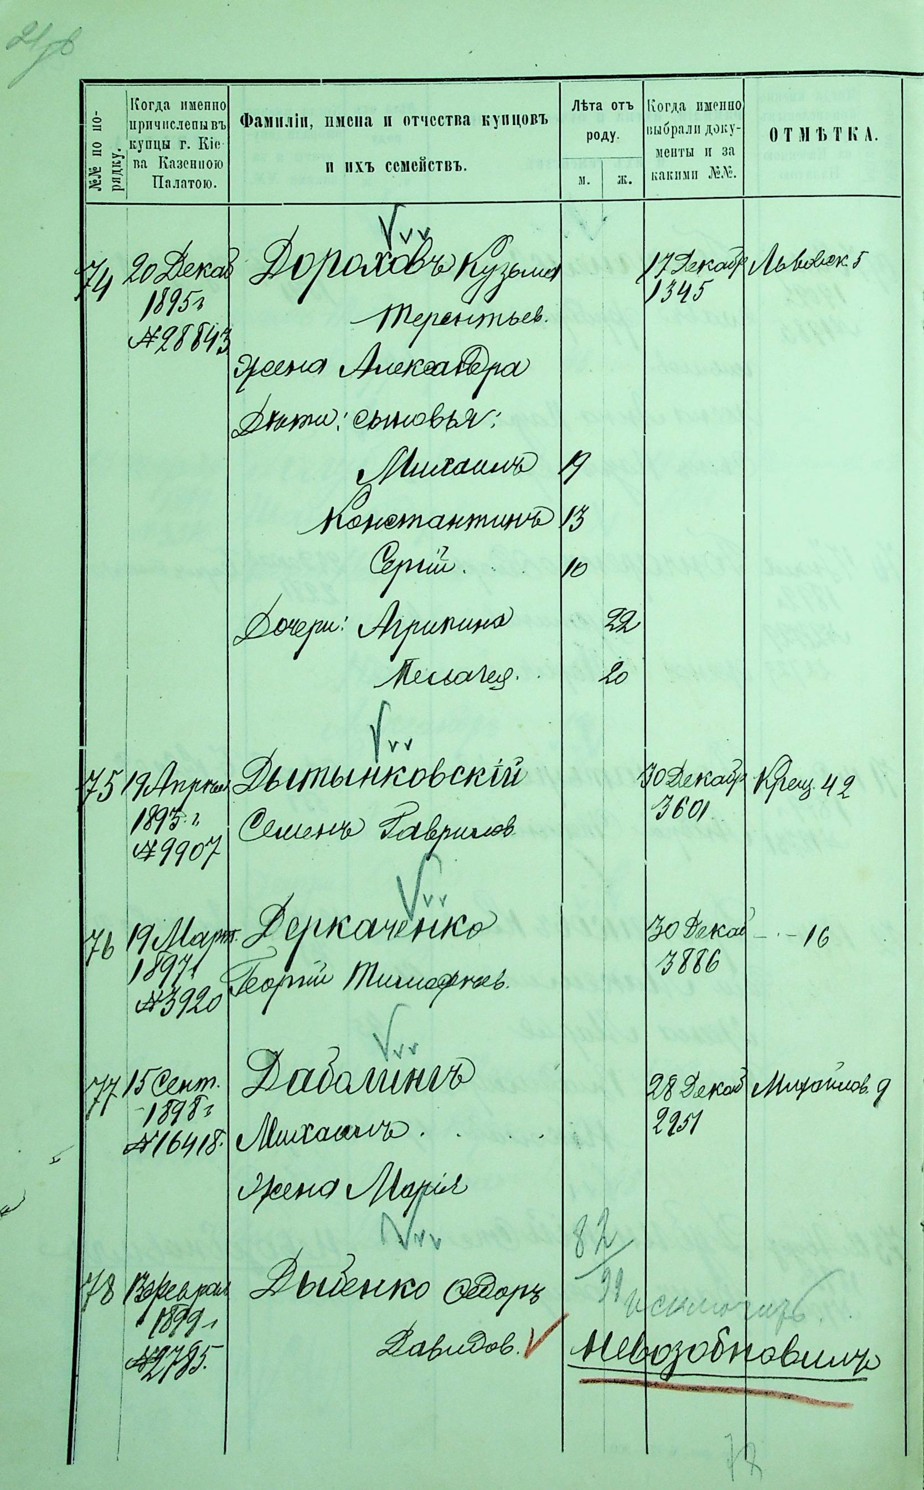 №№ по по-
рядку.
Когда именно
причислены въ
купцы г. Кіе-
ва Казенною
Палатою.
Фамиліи, имена и отчества купцовъ
и ихъ семействъ.
Лѣта отъ
роду.
м.
ж.
Когда именно
выбрали доку-
менты и за
какими №№.
ОТМѢТКА.
74 20 Декаб Дороховъ Кузьма 17 Декабр Львовск. 5
1895 г 1345
№28843 Терентьев.
Жена Александра
Дѣти: сыновья:
Михаилъ 19
Константинъ 13
Сергій 10
Дочери: Агрипина 22
Пелагея 20
75 19 Апрѣля Дытынковскій 30 Декабр Крещ. 42
1893 г. Семенъ Гаврилов. 3601
№9907
76 19 Март. Деркаченко 30 Декаб – · – 16
1897 г Георгій Тимофѣев. 3886
№3920
77 15 Сент. Даболингъ 28 Декаб Михайлов. 9
1898 г 2951
№16418. Михаилъ
Жена Марія
82/
78 13 Феврал Дыбенко Ѳедоръ исключить
1899 г
№2785. Давидов. Невозобновилъ